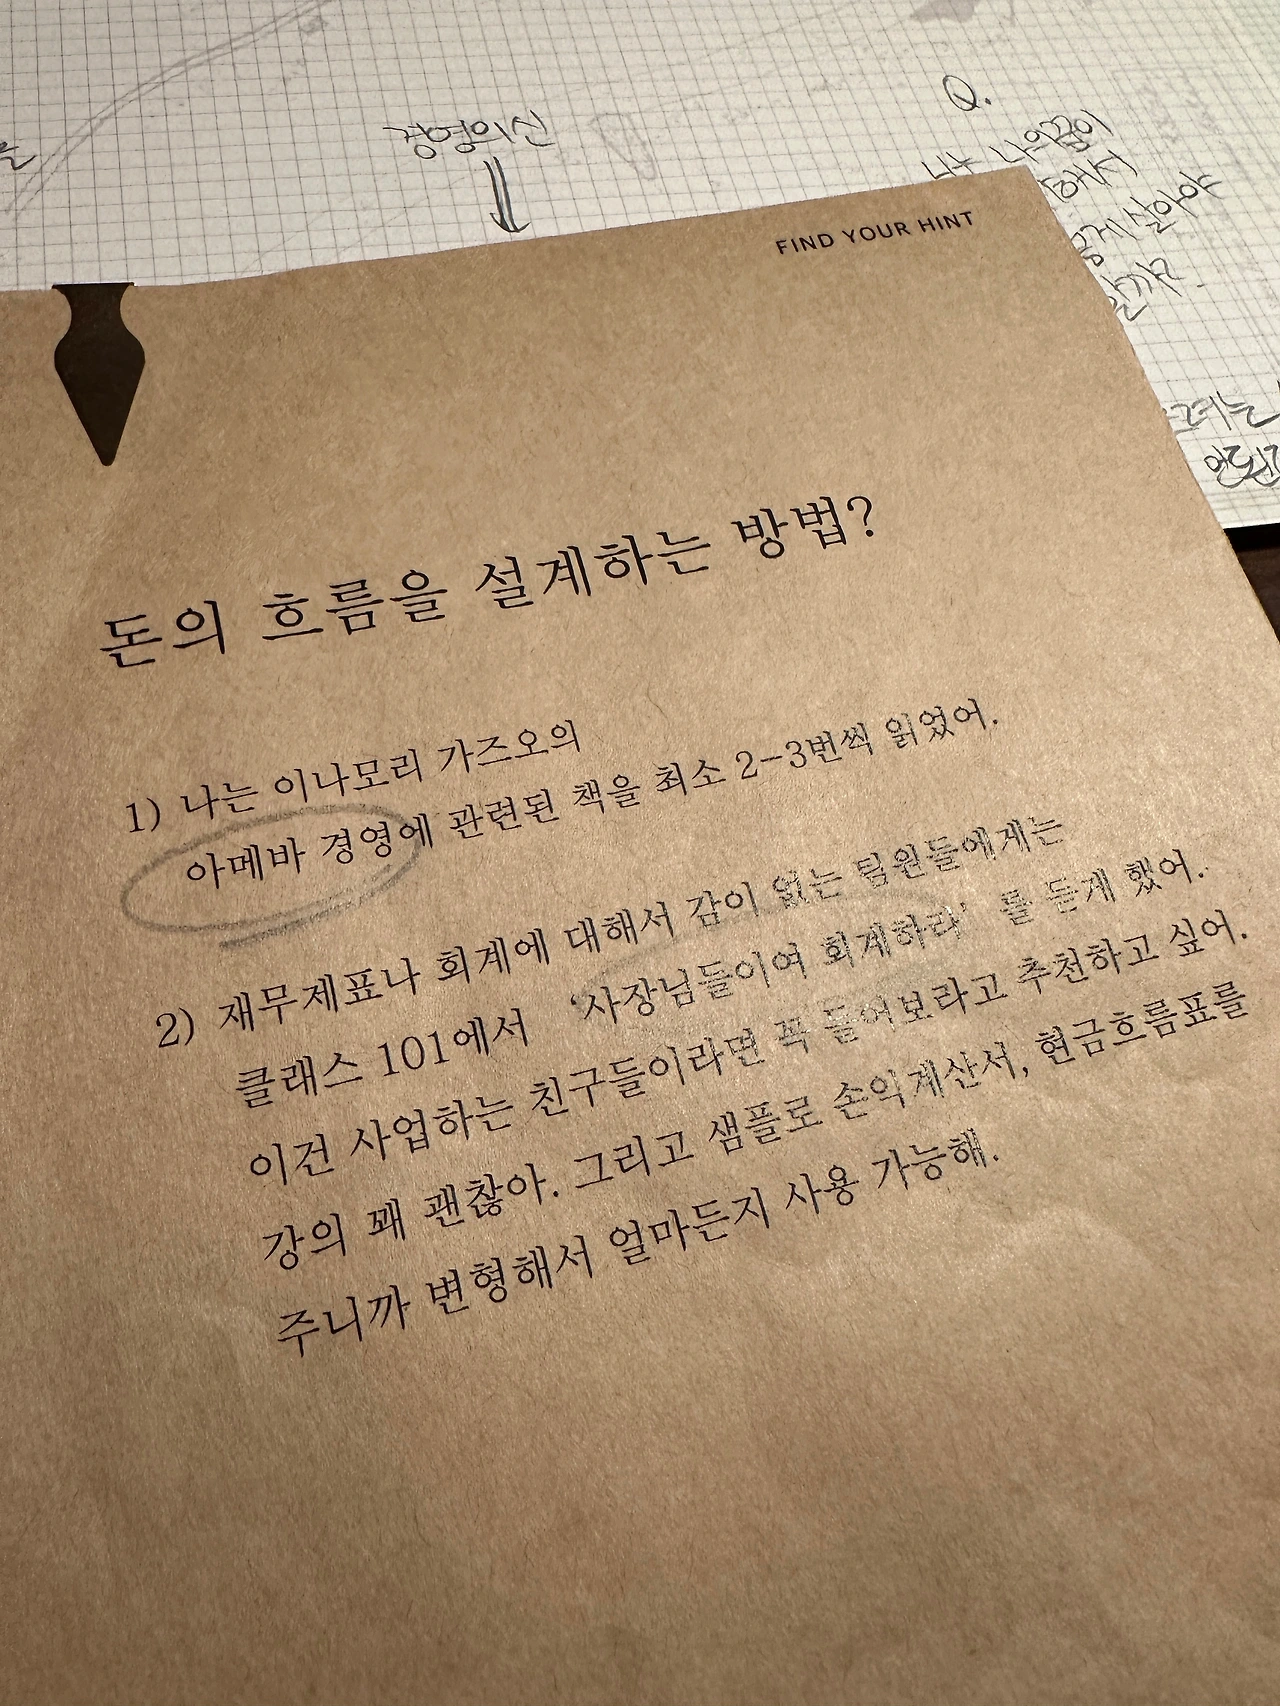 경영의신
Q.
나는 나의꿈이
살아야
할까?
그녀는
FIND YOUR HINT
돈의 흐름을 설계하는 방법?
1) 나는 이나모리 가즈오의
아메바 경영에 관련된 책을 최소 2-3번씩 읽었어.
2) 재무제표나 회계에 대해서 감이 없는 팀원들에게는
클래스 101에서 '사장님들이여 회계하라' 를 듣게 했어.
이건 사업하는 친구들이라면 꼭 들어보라고 추천하고 싶어.
강의 꽤 괜찮아. 그리고 샘플로 손익계산서, 현금흐름표를
주니까 변형해서 얼마든지 사용 가능해.